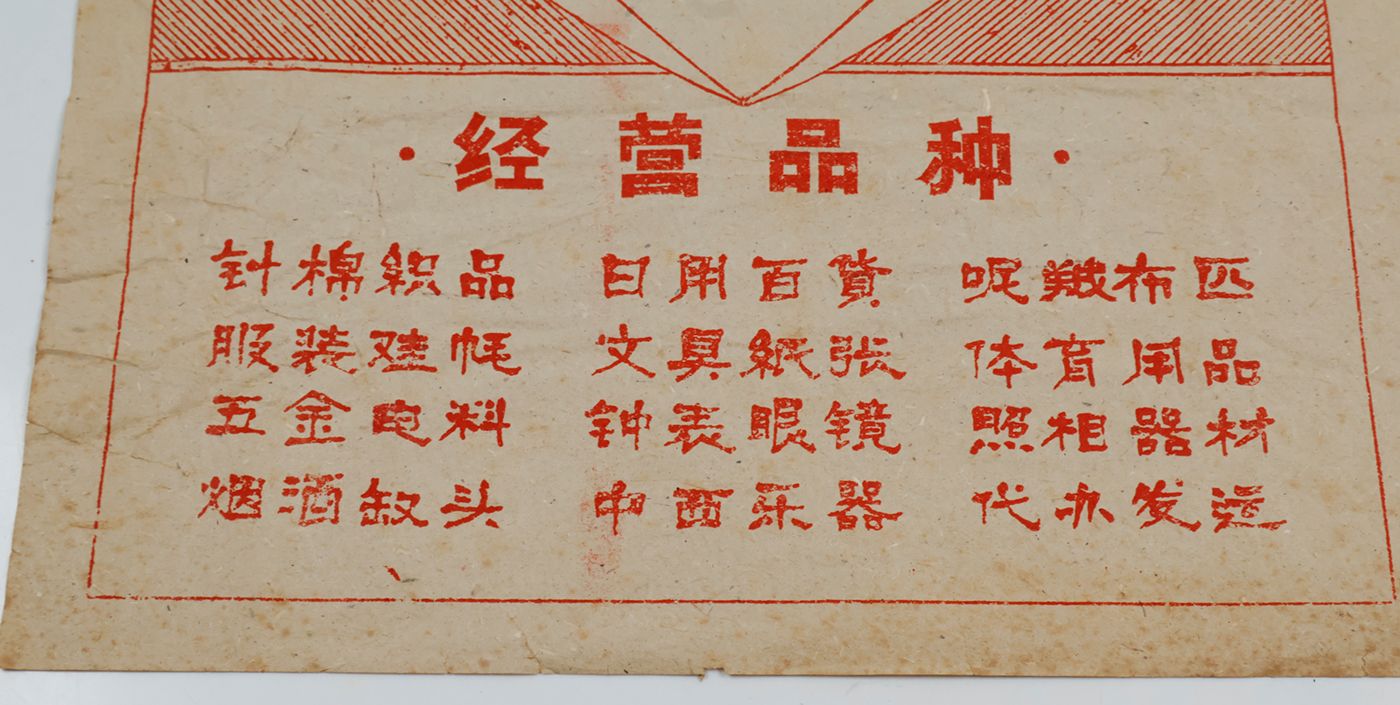 ·经营品种·
针棉织品 日用百貨 呢羢布匹
服装鞋帽 文具紙张 体育用品
五金电料 钟表眼镜 照相器材
烟酒罐头 中西乐器 代办发送